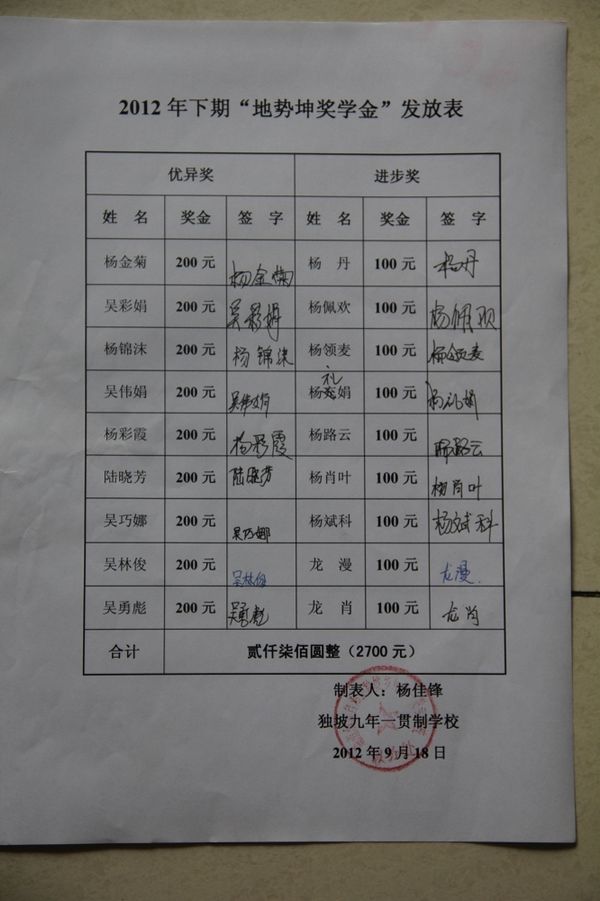 2012年下期“地势坤奖学金”发放表
优异奖 进步奖
姓 名 奖金 签 字 姓 名 奖金 签 字
杨金菊 200元 杨金菊 杨 丹 100元 杨丹
吴彩娟 200元 吴彩娟 杨佩欢 100元 杨佩欢
杨锦沫 200元 杨锦沫 杨领麦 100元 杨领麦
礼
吴伟娟 200元 吴伟娟 杨娟 100元 杨礼娟
杨彩霞 200元 杨彩霞 杨路云 100元 路云
陆晓芳 200元 陆晓芳 杨肖叶 100元 杨肖叶
吴巧娜 200元 吴巧娜 杨斌科 100元 杨斌科
吴林俊 200元 吴林俊 龙 漫 100元 龙漫.
吴勇彪 200元 吴勇彪 龙 肖 100元 龙肖
合计 贰仟柒佰圆整（2700元）
制表人：杨佳锋
独坡九年一贯制学校
2012年9月18日